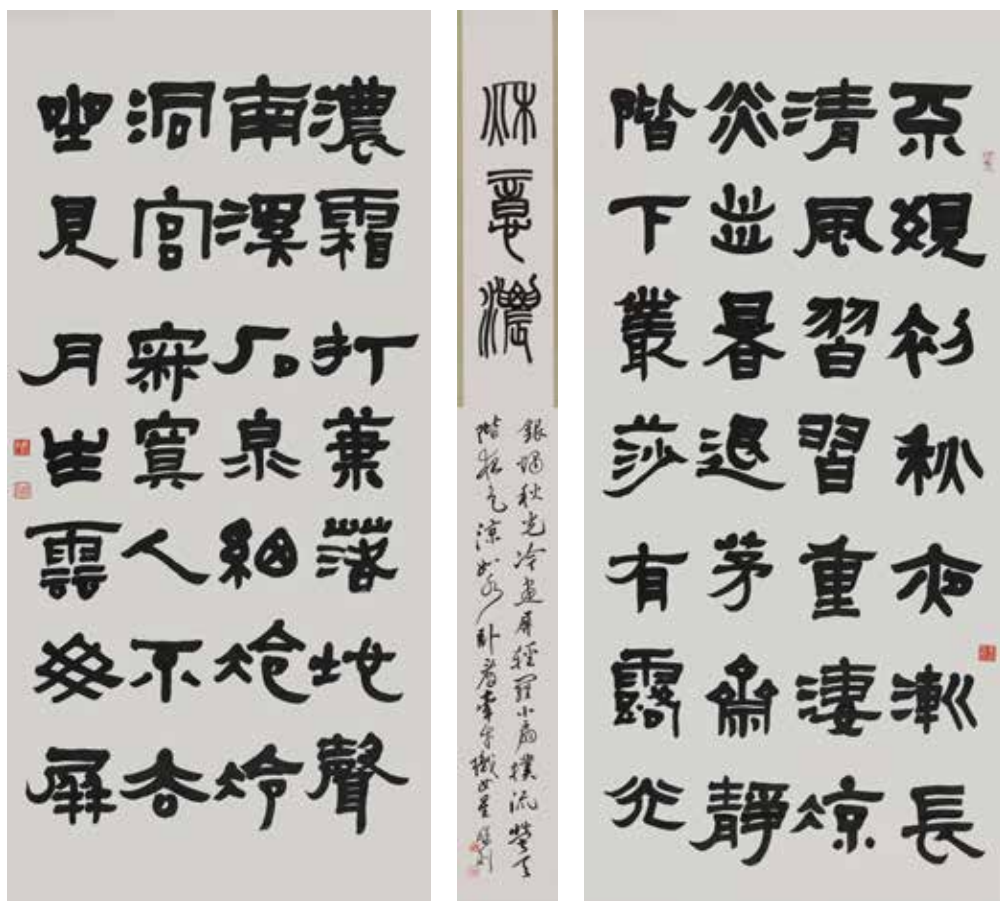 不覺初秋夜漸長
清風習習重淒涼
炎炎暑退茅齋靜
階下叢莎有露光
秋意濃
銀燭秋光冷畫屏輕羅小扇撲流螢天
階夜色涼如水臥看牽牛織女星
濃霜打葉落地聲
南溪石泉細泠泠
洞宮寂寞人不去
坐見月生雲母屏